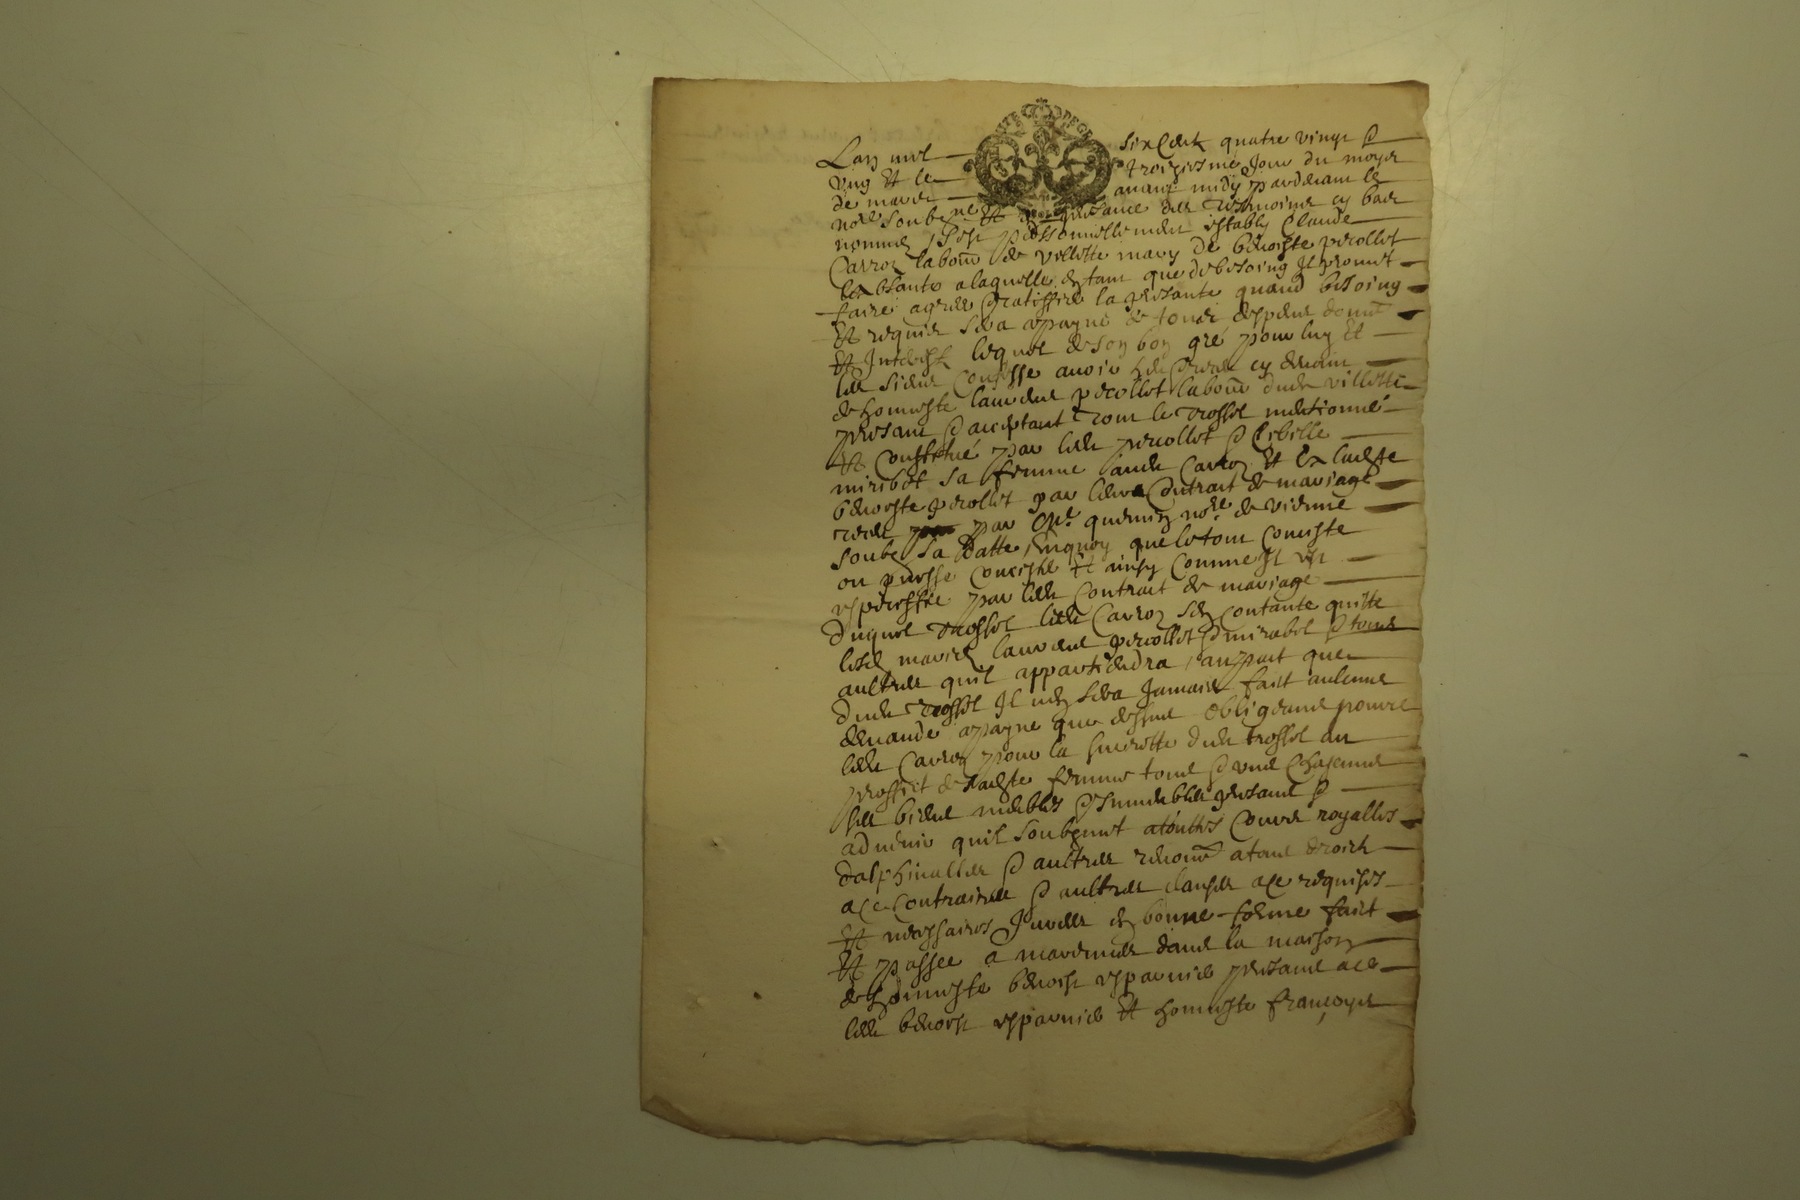 Lan mil six Cent quatre vingt &
ung et le troiziesme Jour du moys
de mars avant midy pardevant le
no.re soubz.ne et en presance des tesmoins cy bas
nommes sest personnellement estably Claude
Carroz labou.r de villette mary de benoiste perollet
absante a laquelle en tant que de besoing il promet
faire agreer & ratiffier la presante quand besoing
Et requis sera a payne de tous despens dom.
Et Interest lequel de son bon gre pour luy et
les siens Confesse avoir heu & receu cy devant
de honneste laurens perollet labou.r dud villette
presant & acceptant tout le trossel mentionné
et constitué par led perollet & sibille
mirebel sa femme aud Carroz et a lad.te
benoiste perollet par leur Contrat de mariage
receu par M.e quemin no.re de vienne
soubz sa datte, en quoy que le tout conciste
ou puisse conciste et ainsy comme il est
expecifié par led Contrait de mariage
duquel trossel led Carroz sen contante quitte
lesd mariés laurens perollet & mirabel & tous
aultres quil appartiendra, au pact que
dud trossel Il nen sera Jamais faict aulcune
demande a payne que dessus obligeant pource
led Carroz pour la seurette dud trossel au
proffict de sad.te femme tous & uns Chacuns
ses biens meubles & immeubles presant &
advenir quil soubzmet a touttes Cours royalles
dalphinalles & aultres renonc.t a tous droich
a ce Contraires & aultres clauses a ce requises
Et necessaires Jurées en bonne forme faict
Et passée a marennes dans la maison
de honneste benoist esparnier presant a ce
led benoist esparnier et honneste françoys